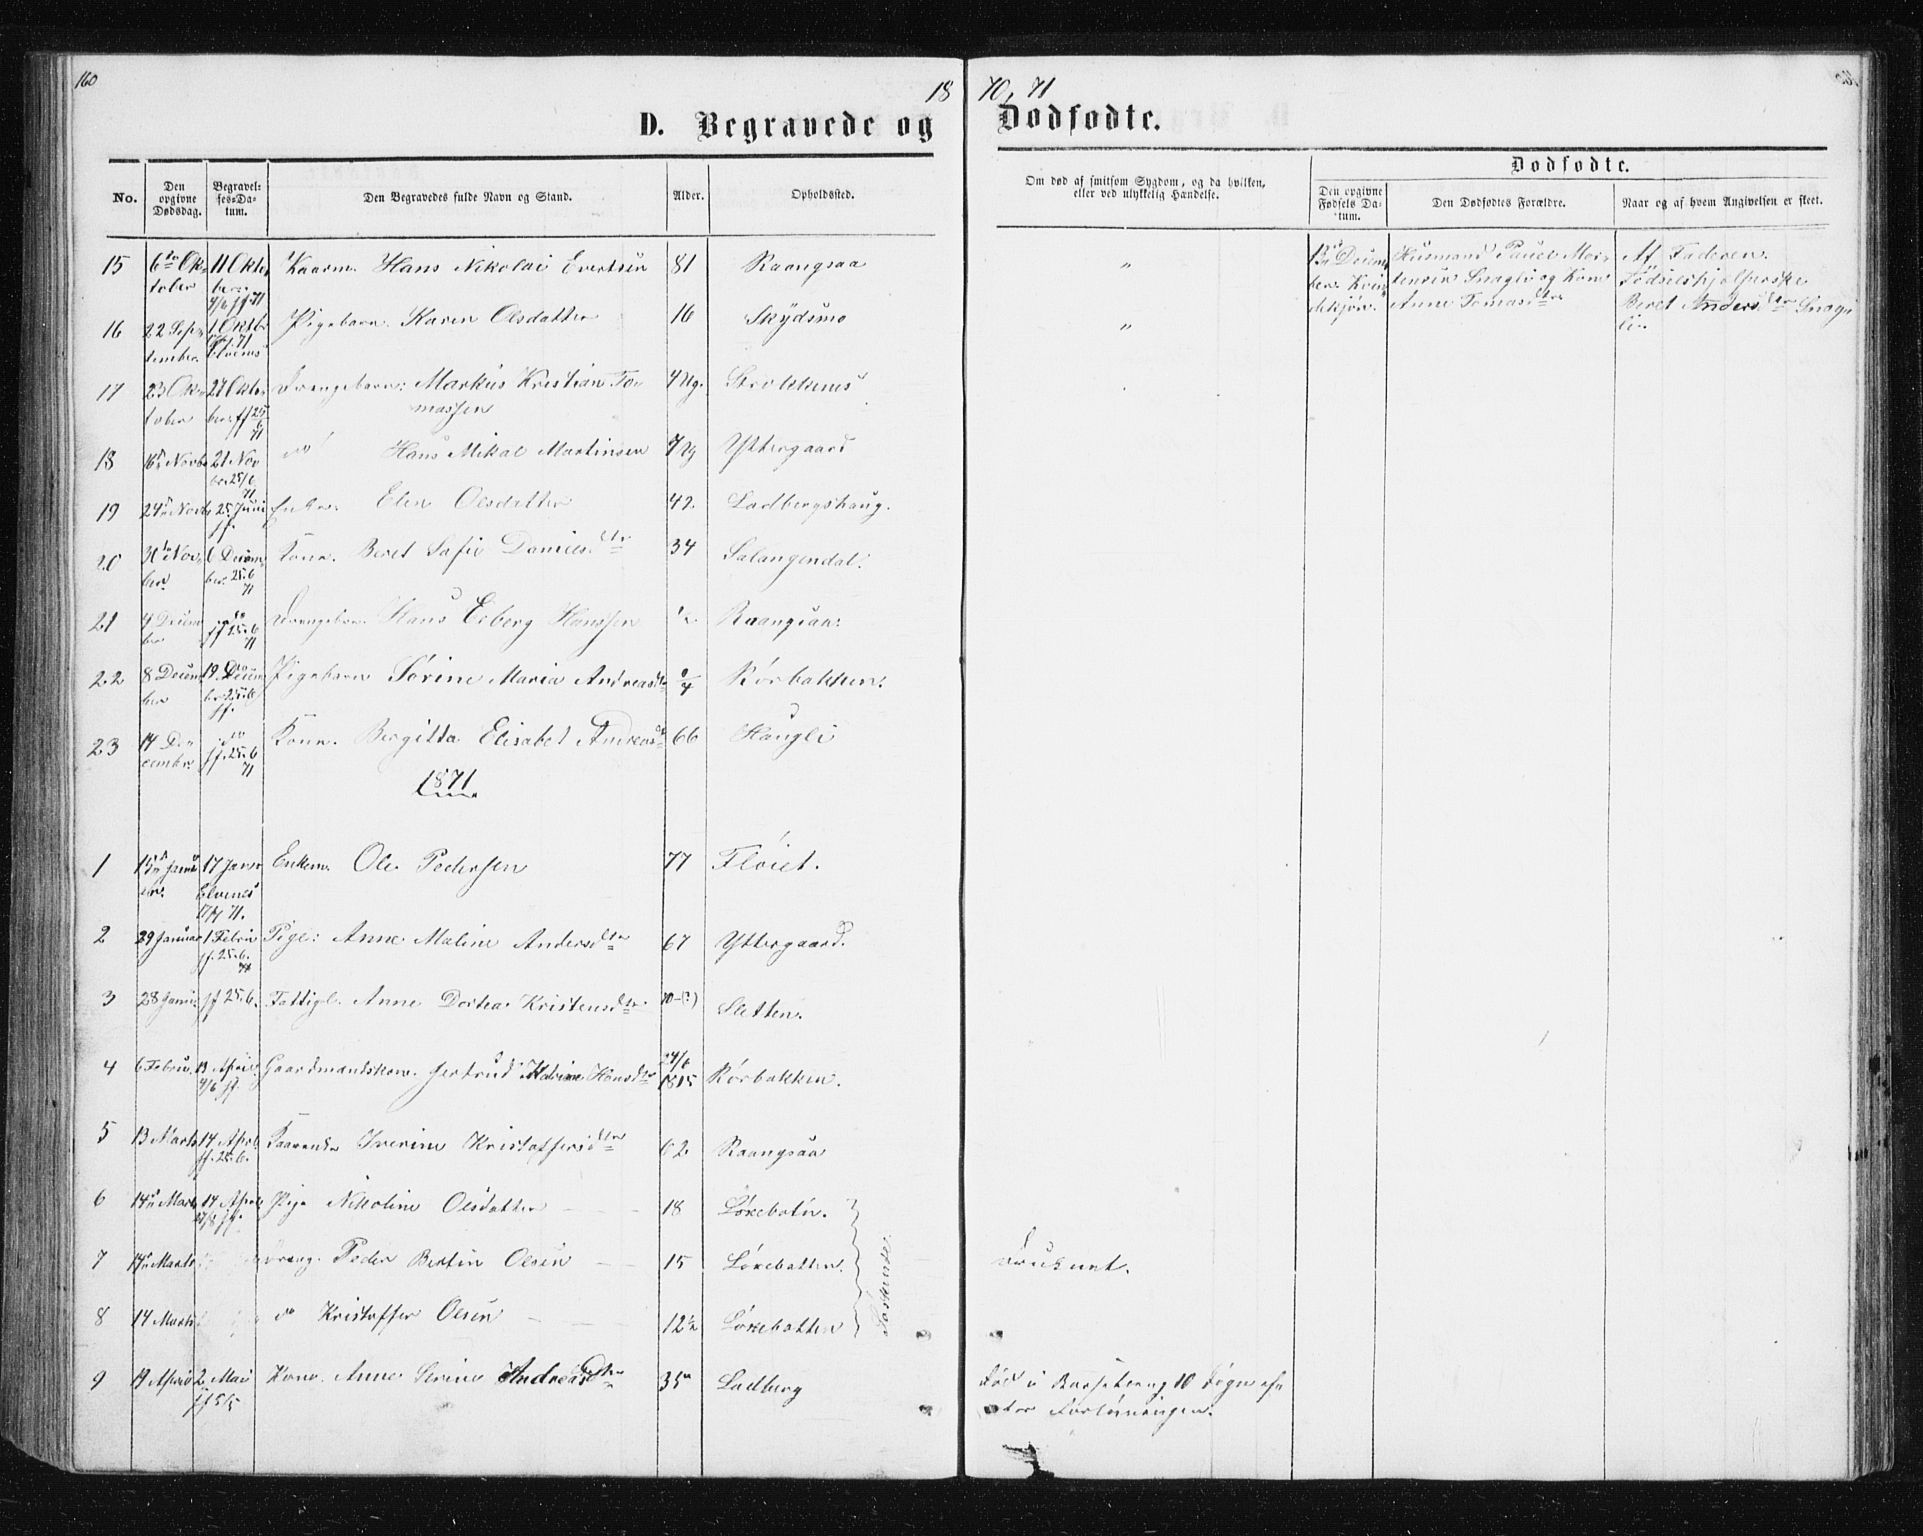 160
18 70, 71
D. Begravede og Dødfødte.
No. Den opgivne Dødsdag. Begravelses-Datum. Den Begravedes fulde Navn og Stand. Alder. Opholdssted. Om død af smitsom Sygdom, og da hvilken, eller ved ulykkelig Hændelse. Dødfødte.
Den opgivne Fødsels Datum. Den Dødfødtes Forældre. Naar og af hvem Angivelsen er skeet.
15 6te Oktober 11 Oktober 4/6 jf 71 Kaarm. Hans Nikolai Evertsen 81 Raangsaa " 13de Decem- Husmand Paul Mor- Af Faderen.
ber. Kvin- tensen Snagli og Kone Fødselshjælperske
dekjøn. Anne Tomasdtr Beret Andersdtr Snag-
li.
16 22 September 1 Oktbr 71 Elvenes Pigebarn. Karen Olsdatter 16 Skydsmo "
17 23 Oktober 27 Oktober jf 25/6 71 Drengebarn: Markus Kristian To-
massen 4 Ug. Strokkenes
18 16de Novbr 21 Novber 25/6 71 do Hans Mikal Martinsen 7 Ug Yttergaard
19 24de Novbr 25 Juni jf. Enke: Elen Olsdatter 42. Ladbergshaug.
20 30te November 6 December 25.6 71 Kone. Beret Sofie Danielsdtr 34 Salangendal.
21 4 December do jf 25.6 71 Drengebarn. Hans Eiberg Hanssen 1/2 Raangsaa.
22 8 December 19 December 25.6 jf. Pigebarn Sørine Maria Andreasdtr /4 Rørbakken.
23 14 Decembr. do jf. 25.6 71 Kone. Bergitta Elisabet Andreasdtr 66 Haugli
1871
1 15de Januar. 17 Januar Elvenes 17/4 71. Enkem. Ole Pedersen 77 Fløiet.
2 29 Januar 1 Februr jf. 25.6. 71 Pige: Anne Maline Andersdtr 67 Yttergaard.
3 28 Janu. jf 25.6. Fattigl. Anne Dortea Kristensdtr. 70-(?) Sletten.
4 6 Februr. 13 April. 4/6 jf. Gaardmandskone. Gertrud Katrine Hansdtr 24/6 1815 Rørbakken.
5 13 Marts 14 April. jf. 25.6. Kaarenke Iverine Kristoffersdtr 62 Raangsaa
6 14de Marts 14 April Pige Nikoline Olsdatter 18 Løxebotn.
7 14de Marts Dreng. Peder Bertin Olsen 15 Løxebotten. Søskende. Druknet.
8 14 Marts do Kristoffer Olsen 12 1/2 Løxebotten
9 19 April 2 Mai jf 5/5 Kone. Anne Serine Andreasdtr 35 Ladberg Død i Barselseng 10 Døgn ef-
ter Forløsningen.